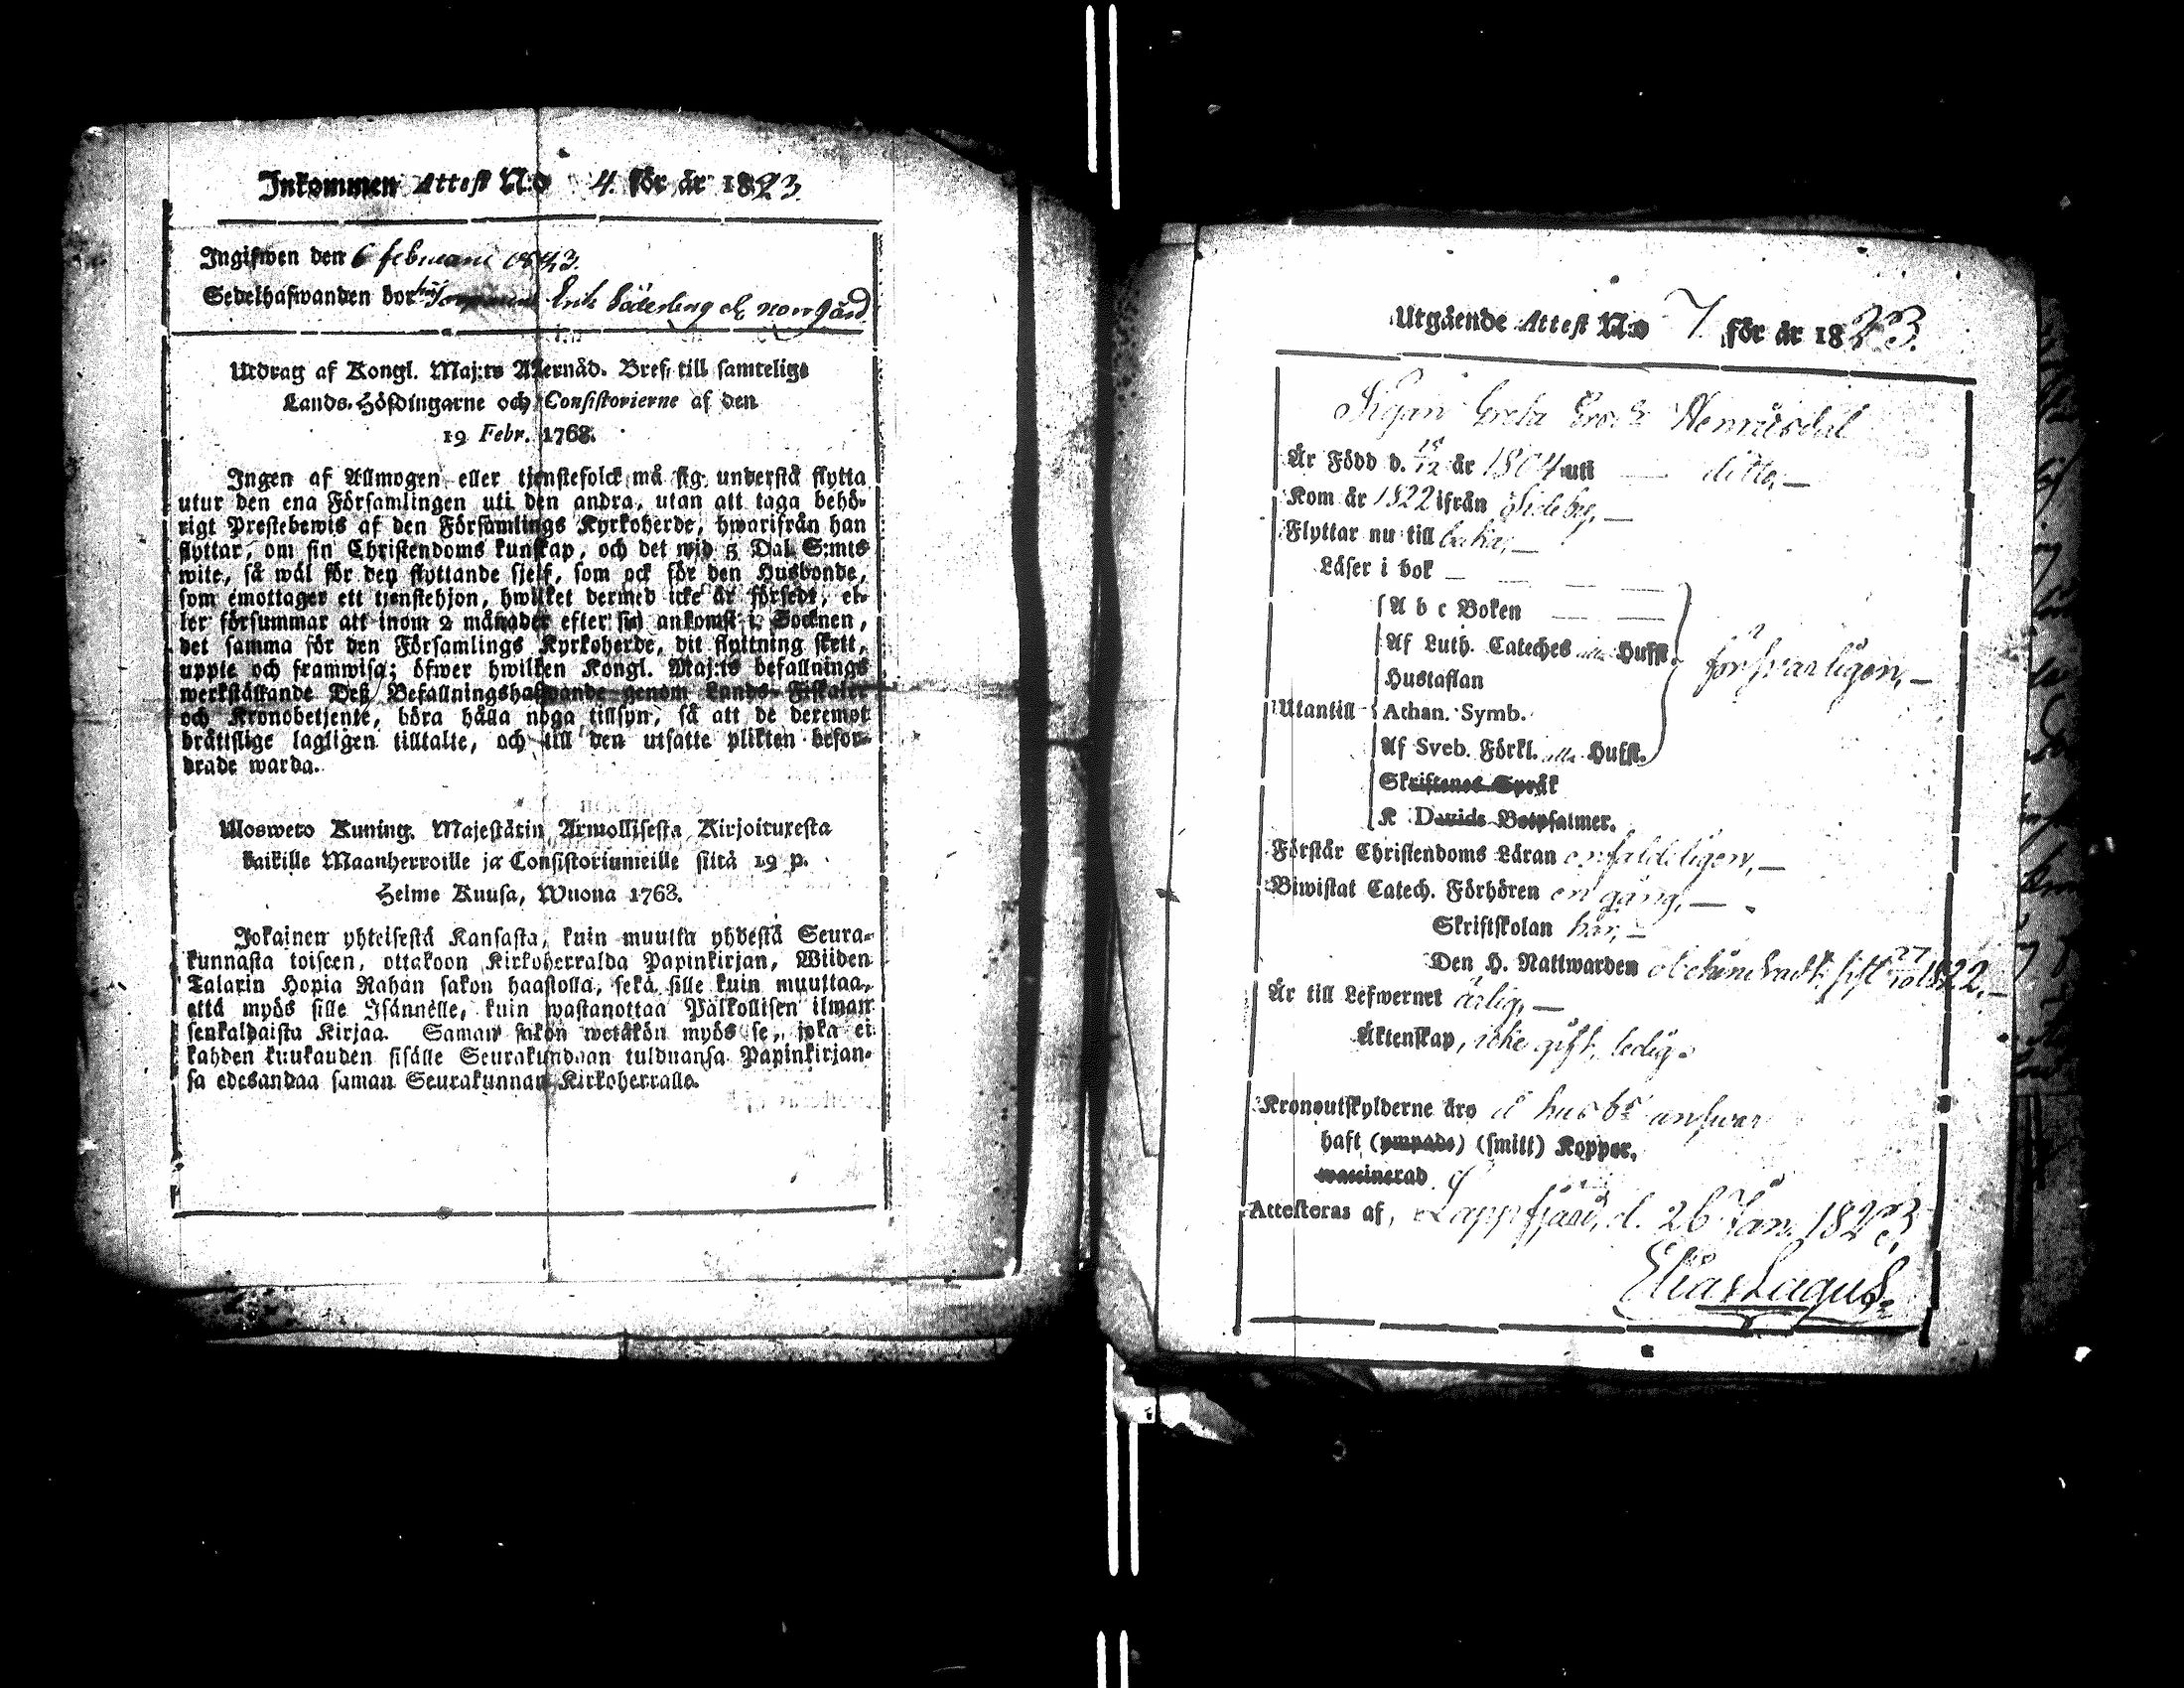 Inkommen Attest N:o 4. för år 1823.
Ingifwen den 6 februarii 1823.
Sedelhafwanden bor hos Erik Söderling å Norrgård
Utdrag af Kongl. Maj:ts Allernåd. Bref, till samtelige
Lands-Höfdingarne och Consistorierne af den
19 Febr. 1768.
Ingen af Allmogen eller tjenstefolck må sig understå flytta
utur den ena Församlingen uti den andra, utan att taga behö-
rigt Prestebewis af den Församlings Kyrkoherde, hwarifrån han
flyttar, om sin Christendoms kunskap, och det wid 5 Dal. S:mts
wite, så wäl för den flyttande sjelf, som ock för den Husbonde,
som emottager ett tjenstehjon, hwilket dermed icke är försedt, el-
ler försummar att inom 2 månader efter sin ankomst i Socknen,
det samma för den Församlings Kyrkoherde, dit flyttning skett,
uppte och framwisa; öfwer hwilken Kongl. Maj:ts befallnings
werkställande Deß Befallningshafwande genom Lands-Fiskaler
och Kronobetjente, böra hålla noga tillsyn, så att de deremot
brättslige lagligen tilltalte, och till den utsatte plikten befor-
drade warda.
Ulosweto Kuning. Majestätin Armollisesta Kirjoituxesta
kaikille Maanherroille ja Consistoriumeille siitä 19 p.
Helme Kuusa, Wuona 1768.
Jokainen yhteisestä Kansasta, kuin muutta yhdestä Seura-
kunnasta toiseen, ottakoon Kirkoherralda Papinkirjan, Wiiden
Talarin Hopia Rahan sakon haastolla, sekä sille kuin muuttaa,
että myös sille Isännelle, kuin wastanottaa Palkollisen ilman
senkaldaista Kirjaa. Saman sakon wetäkön myös se, joka ei
kahden kuukauden sisälle Seurakundaan tulduansa Papinkirjan-
sa edesandaa saman Seurakunnan Kirkoherralle.
Utgående Attest N:o 7. för år 1823.
Pigan Greta Henriksdal
Är Född d. 18/12 år 1804 uti — ditto, —
Kom år 1822 ifrån Sideby, —
Flyttar nu till baka, —
Läser i bok
A b c Boken
Af Luth. Cateches alla Hufst.
Hustaflan
försvarligen, —
Utantill Athan. Symb.
Af Sveb. Förkl. alla Hufst.
Skriftenes Språk
K Davids Botpsalmer.
Förstår Christendoms Läran enfaldeligen, —
Biwistat Catech. Förhören en gång, —
Skriftskolan här, —
Den H. Nattwarden obehindradt sist 27/10 1822, —
Är till Lefwernet ärlig, —
Äktenskap, icke gift, ledig.
Kronoutskylderne äro å husbs answar
haft (ympade) (smitt) Koppor,
waccinerad
Attesteras af, Lappfjärd, d. 26 Jan. 1823,
Elias Lagus